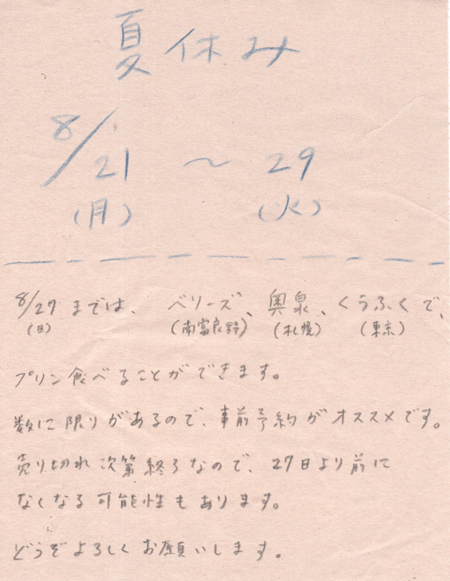 夏休み
8/21 〜 29
(月) (火)
8/27 までは、 ベリーズ、奥泉、くうふくで、
(日) (南富良野) (札幌) (東京)
プリン食べることができます。
数に限りがあるので、事前予約がオススメです。
売り切れ次第終了なので、27日より前に
なくなる可能性もあります。
どうぞよろしくお願いします。